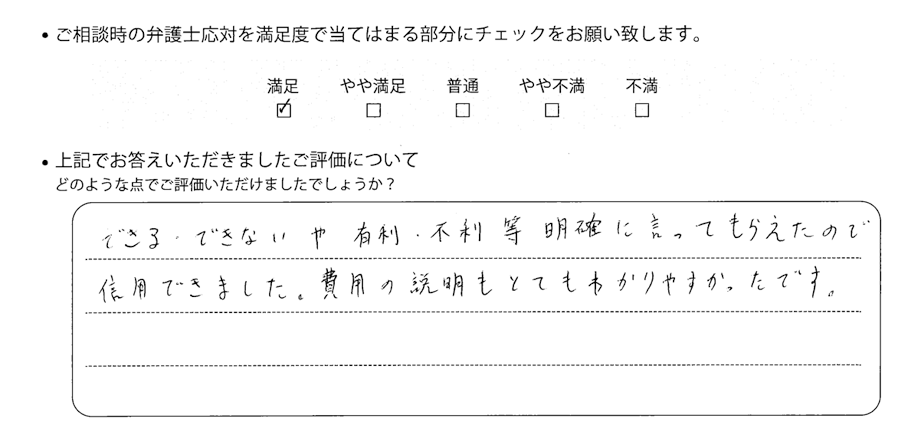 • ご相談時の弁護士応対を満足度で当てはまる部分にチェックをお願い致します。
満足 やや満足 普通 やや不満 不満
☑ ☐ ☐ ☐ ☐
• 上記でお答えいただきましたご評価について
どのような点でご評価いただけましたでしょうか？
できる・できないや 有利・不利等 明確に言ってもらえたので
信用できました。費用の説明もとてもわかりやすかったです。